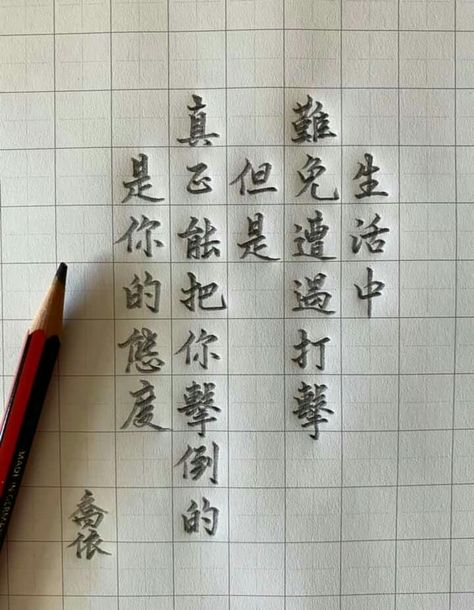 生活中
難免遭遇打擊
但是
真正能把你擊倒的
是你的態度
喬依
MADE IN GERMANY